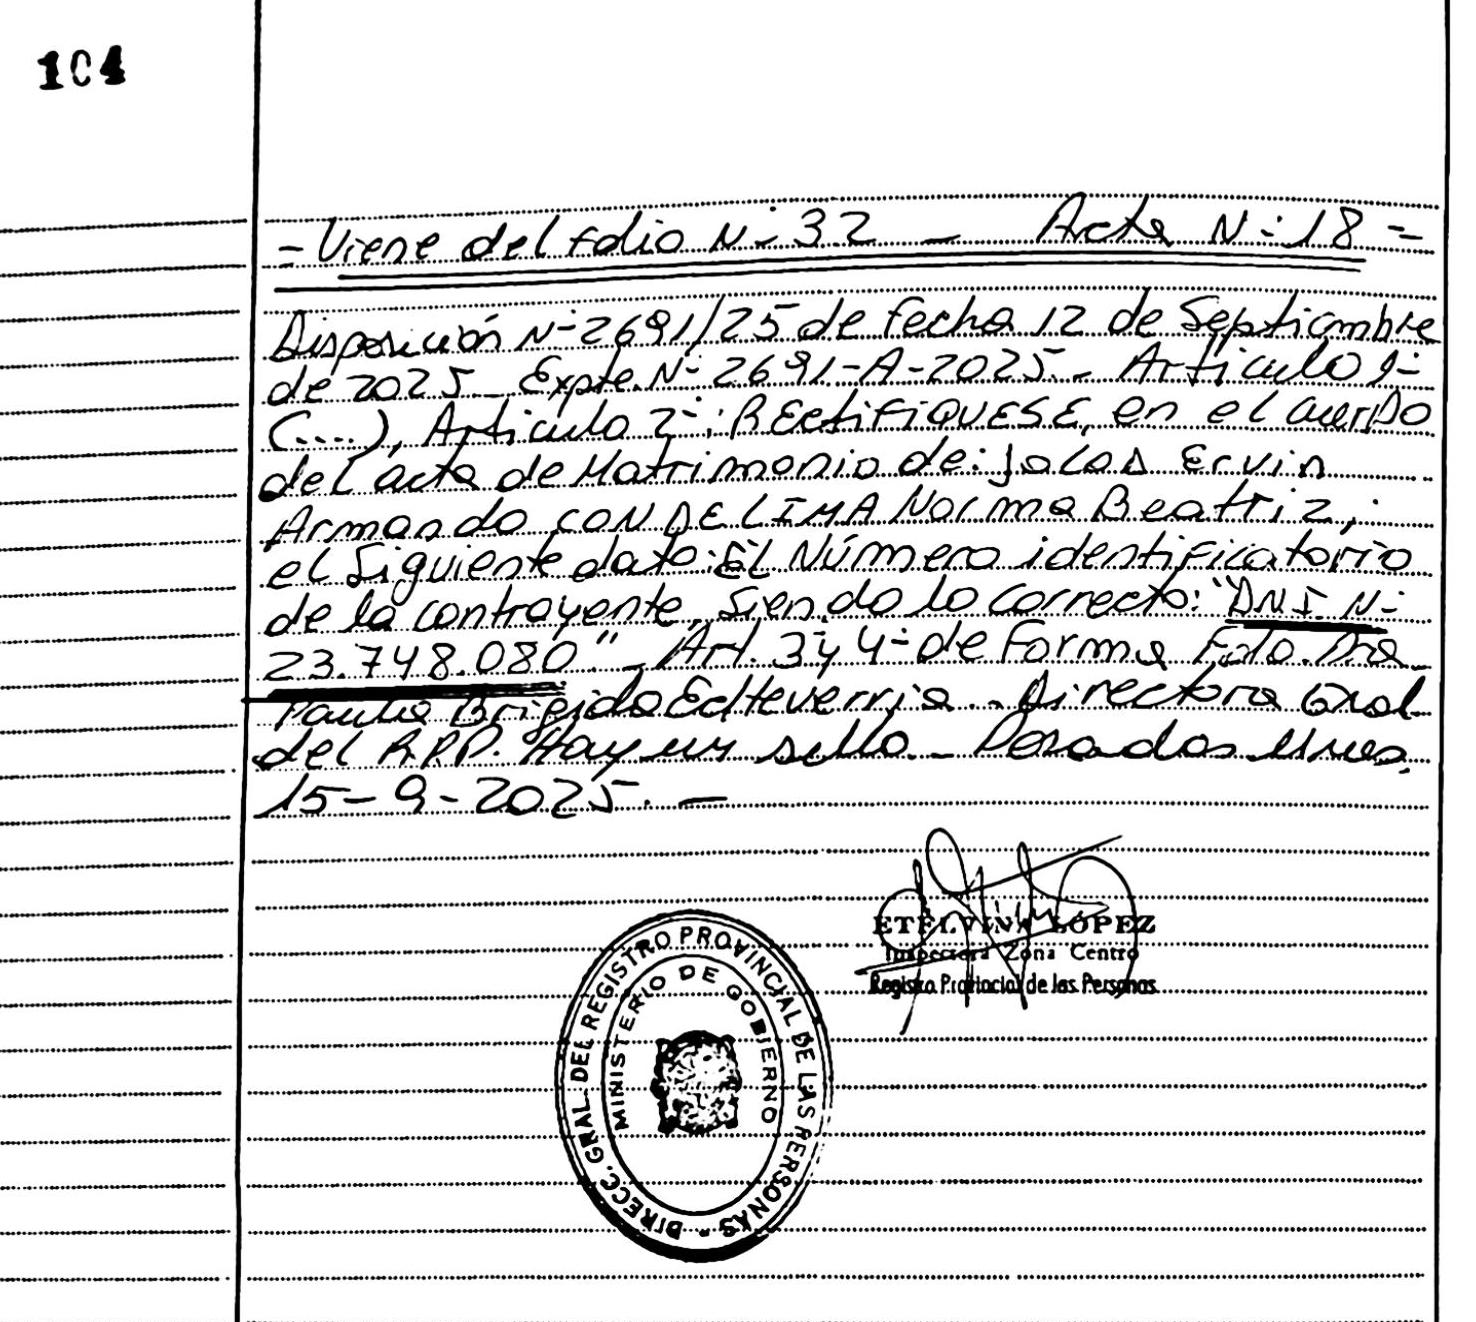 104
= Viene del folio N- 32 — Acta N- 18 =
Disposición N- 2691/25 de fecha 12 de Septiembre
de 2025. Expte. N- 2691-A-2025.- Articulo 1-
(....), Articulo 2-: RECtiFiQUESE, en el cuerpo
del acta de Matrimonio de: Ervin
Armando CON DE LIMA Norma Beatriz,
el Siguiente dato: El Número identificatorio
de la contrayente, Siendo lo correcto: "DNI N-
23.748.080" - Art. 3 y 4- de Forma Fdo. Dra.
Paula Brigida Echeverria.. Directora Gral
del R.P.P. Hay un sello. - Posadas Mnes.
15-9-2025. —
ETELVINA LÓPEZ
Inspectora Zona Centro
Registro Provincial de las Personas
DIRECC. GRAL. DEL REGISTRO PROVINCIAL DE LAS PERSONAS -
MINISTERIO DE GOBIERNO